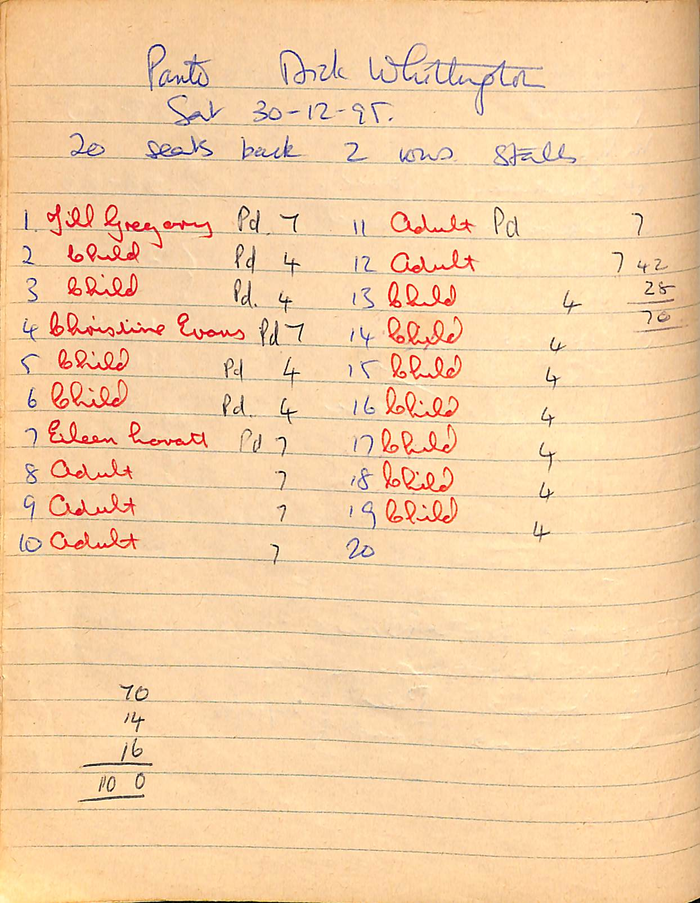 Panto Dick Whittington
Sat 30-12-95.
20 seats back 2 rows stalls
1. Jill Gregory Pd. 7
2 Child Pd 4
3 Child Pd. 4
4 Christine Evans Pd 7
5 Child Pd 4
6 Child Pd. 4
7 Eileen Lovatt Pd 7
8 Adult 7
9 Adult 7
10 Adult 7
11 Adult Pd 7
12 Adult 7
13 Child 4
14 Child 4
15 Child 4
16 Child 4
17 Child 4
18 Child 4
19 Child 4
20
42
28
70
70
14
16
110 0